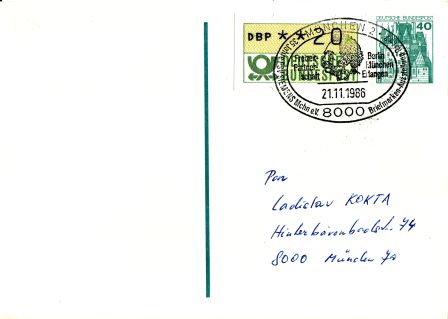 DBP ** 20
40
MÜNCHEN 2
Berlin
München
Erlangen
21.11.1986
8000
Pan
Ladislav KOKTA
Hinterbärenbadstr. 74
8000 München 70